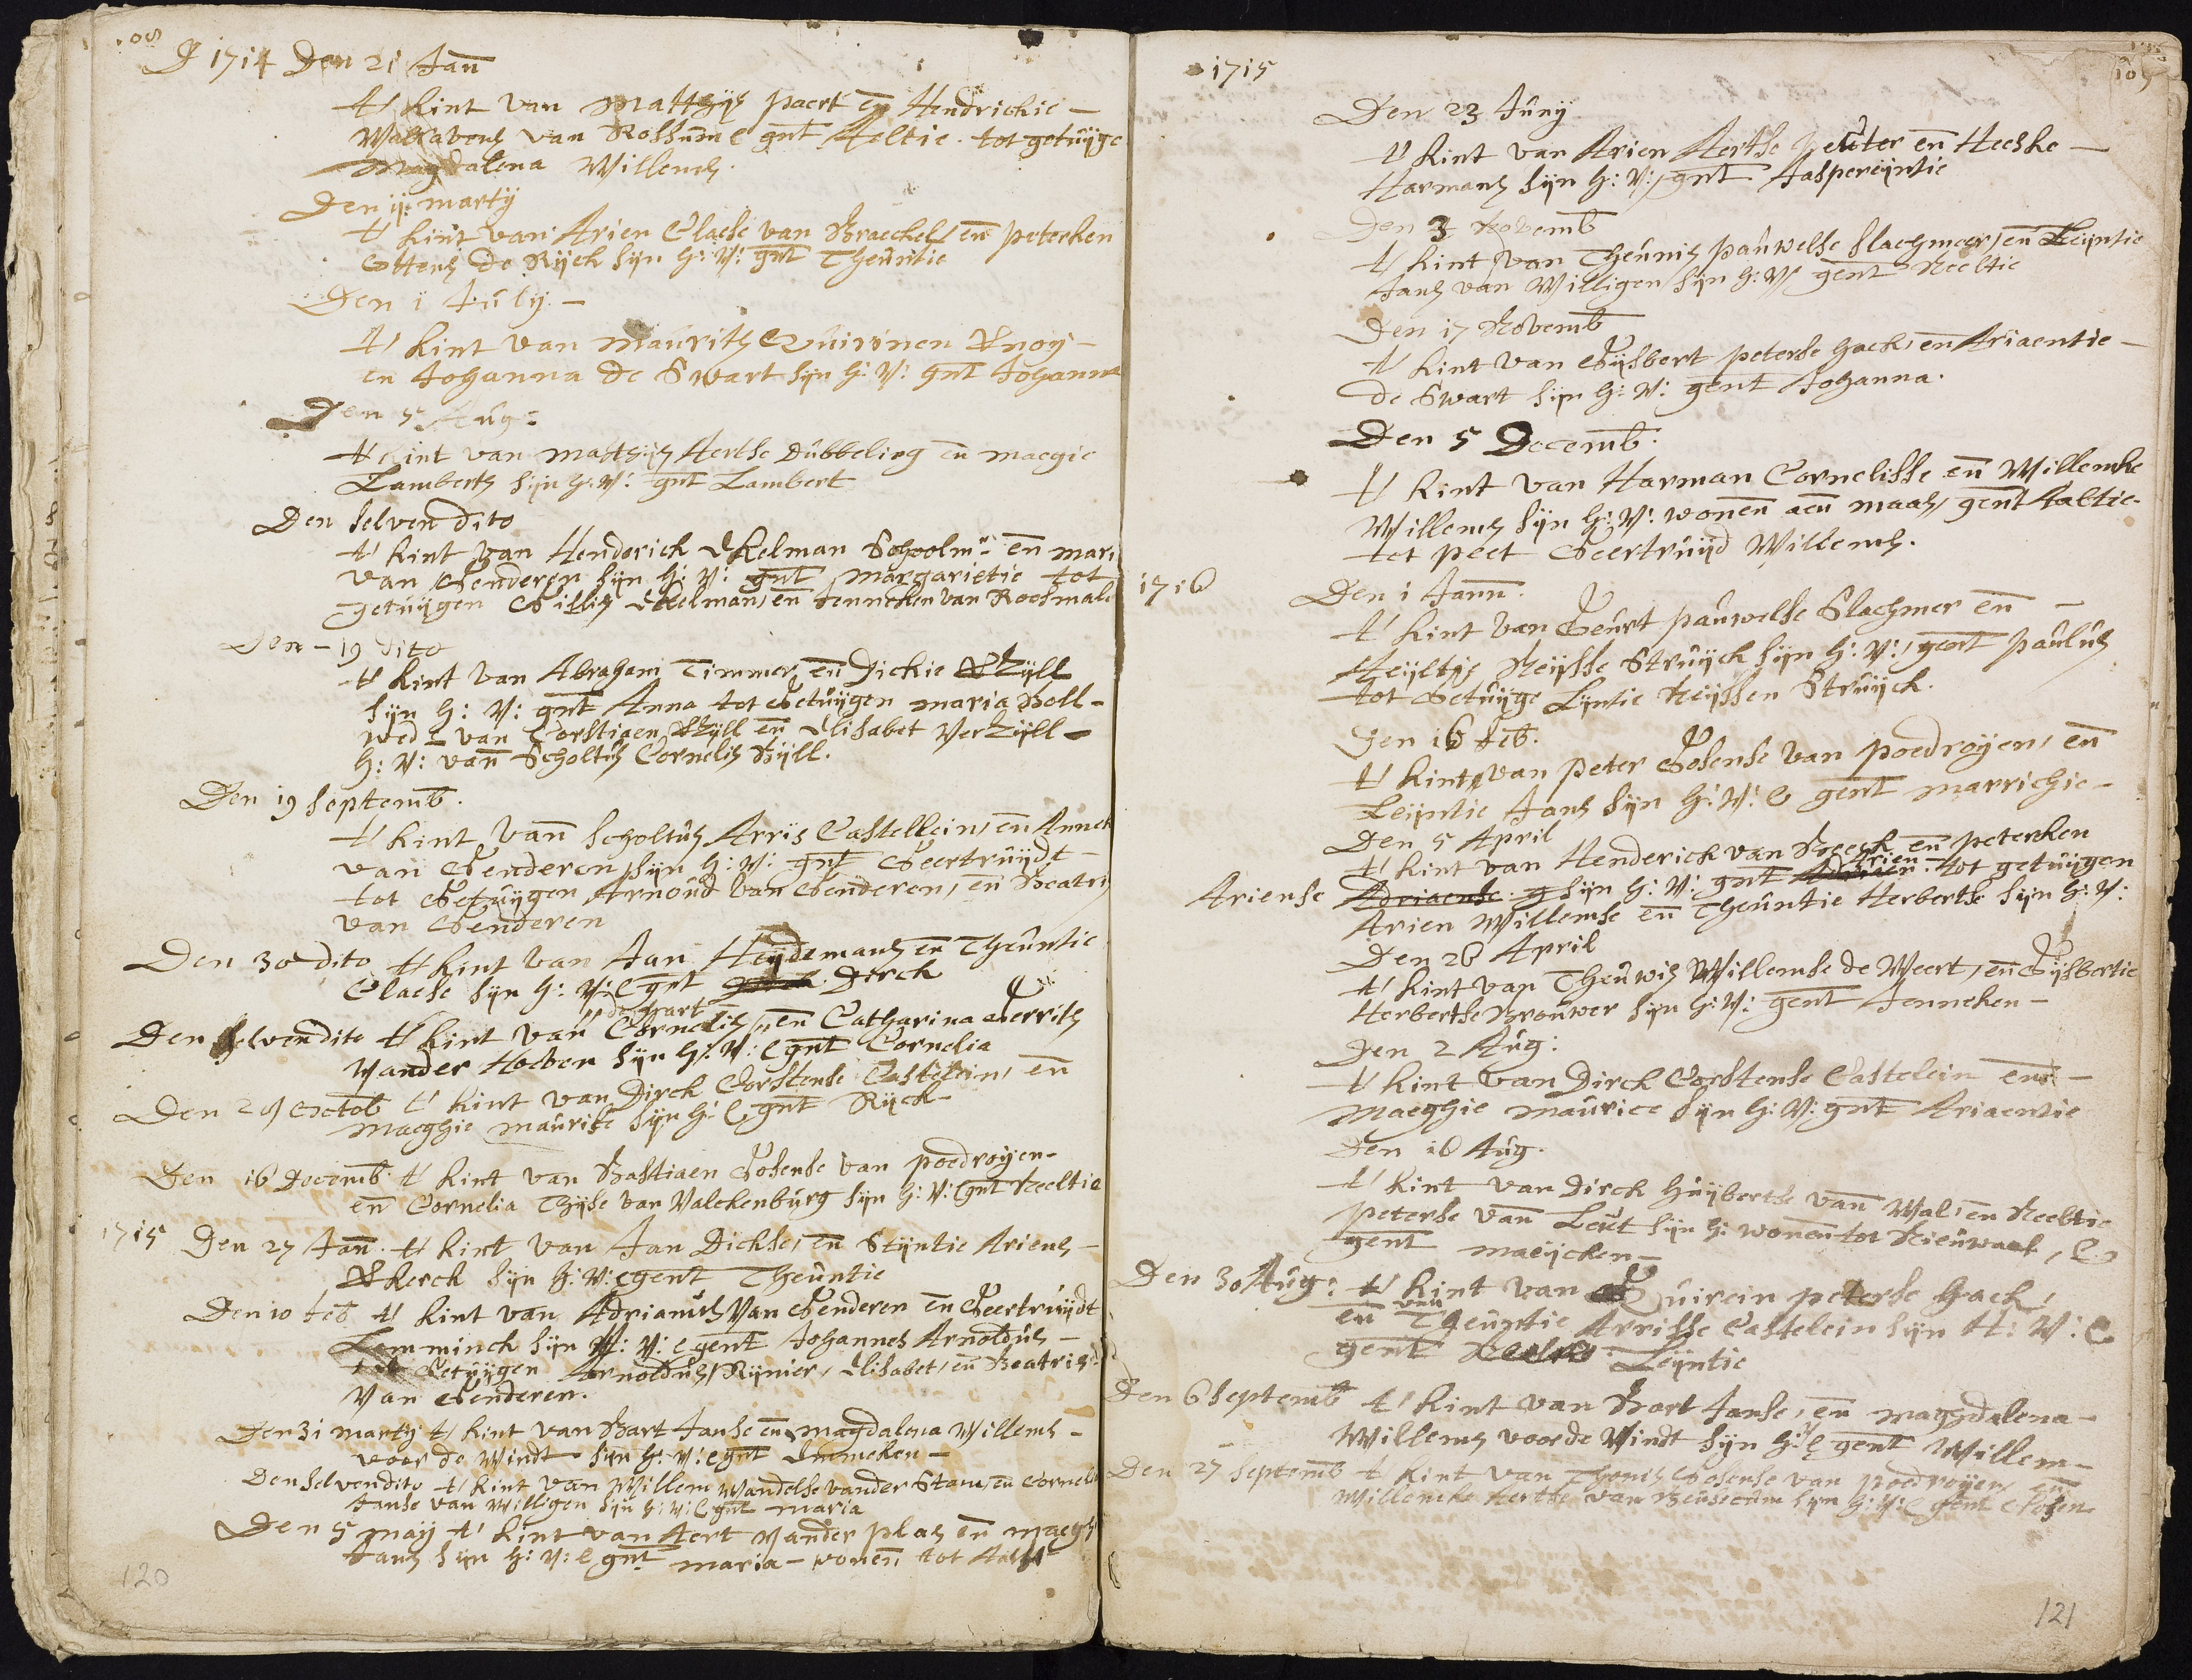 108
1714 Den 21 Jan
t' kint van Matthijs paert en Hendrickie
Walravens van Rossum e gnt Aeltie. tot getuijge
Magdalena Willems.
Den ij. martij
t' kint van Arien Claese van Braeckel, en peterken
Ottens de Rijck sijn h: v: gnt Theuntie
Den i July.
t' kint van Maurits Quirinen
en Johanna de Swart sijn h: v: gnt Johanna
Den 5 Aug:
t' kint van Matthijs Aertse Dubbeling en maegie
Lamberts sijn h: v: gnt Lambert
Den selven dito
t' kint van Henderick Ekelman Schoolmr en mari
van Genderen sijn h: v: gnt margarietie tot
getuijgen Gillis Ekelman, en Jenneken van Roosmale
Den 19 dito
t' kint van Abraham Timmer, en Dickie
sijn h: v: gnt Anna tot Getuijgen maria Boll
wed: van Corstiaen en Elisabet Verzijll
h: v: van Scholtus Cornelis
Den 19 septemb.
t' kint van scholtus Arris Castellein, en Annek
van Genderen sijn h: v: gnt Geertruijdt
tot Getuijgen Arnoud van Genderen, en Beatris
van Genderen
Den 30 dito t' kint van Jan Heijdemans en Theuntie
Claese sijn h: v: e gnt Dirck
de hart
Den selven dito t' kint van Cornelis, en Catharina Gerrits
vander Hoeven sijn h: v: e gnt Cornelia
Den 29 Octob t' kint van Dirck Corstense Castelein, en
maeghie maurise sijn h: e gnt Rijck
Den 16 Decemb. t' kint van Bastiaen Gosense van poedroijen
en Cornelia Thijse van Valckenburg sijn h: v: e gnt Neeltie
1715 Den 27 Jan. t' kint van Jan Dickse, en Stijntie Ariens
sijn h: v: e gent Theuntie
Den 10 feb t' kint van Adrianus Van Genderen en Geertruijdt
Lemminck sijn H: v: e gent Johannes Arnoldus
tot Getuijgen Arnoldus, Rijnier, Elisabet, en Beatris
Van Genderen.
Den 31 martij t' kint van Bart Janse en magdalena Willems
voor de Windt sijn h: v: e gnt Emmeken
Den selven dito t' kint van Willem Wandelse vander Stam, en Corneli
Janse van Willigen sijn h: v: e gnt maria
Den 5 maij t' kint van Aert vander plas en maegh
Jans sijn h: v: e gnt maria wonen tot Aalst
120
1715
109
Den 23 Junij
t' kint van Arien Aertse en Heeske
Harmans sijn h: v: gnt Jaspereijntie
Den 3 Novemb
t' kint van Theunis pauwelse slaghmeer, en Leijntie
Jans van Willigen sijn h: v: gent Neeltie
Den 17 Novemb
t' kint van Gijsbert peterse hack, en Ariaentie
de Swart sijn h: v: gent Johanna.
Den 5 Decemb.
t' kint van Harman Cornelisse en Willemke
Willems sijn h: v: wonen aen maas, gent Aeltie
tot peet Geertruijd Willems.
1716 Den 1 Jann.
t' kint van Geurt pauwelse Slaghmer en
Heijltje Neijsse Struijck sijn h: v: gent paulus
tot Getuijge Lijntie Neijssen Struijck.
Den 16 feb.
t' kint van peter Gosense van poedroijen, en
Leijntie Jans sijn h: v: e gent marrichie
Den 5 April
t' kint van Henderick van Beeck en peterken
Arien
Ariense Adriaense sijn h: v: gnt Adrien. tot getuijgen
Arien Willemse en Theuntie Herbertse sijn h: v:
Den 26 April
t' kint van Theuwis Willemse de Weert, en Gijsbertie
Herbertse Brouwer sijn h: v: gent Jenneken
Den 2 Aug:
t' kint van Dirck Corstense Castelein en
maeghie maurice sijn h: v: gnt Ariaentie
Den 16 Aug.
t' kint van Dirck Huijbertse van Wal, en Neeltie
peterse van Leut sijn h: wonen tot Nieuwaal, e
gent maeijcken
Den 30 Aug: t' kint van Quirein peterse Hack,
van
en Theuntie Arrisse Castelein sijn H: V: e
gent Leijntie
Den 6 Septemb t' kint van Bart Janse, en maghdalena
Willems voor de Windt sijn h: v: e gent Willem
Den 27 Septemb t' kint van Thonis Gosense van poedroijen en
Willemke Aertse van Beusecum sijn h: v: e gent Gosen
121